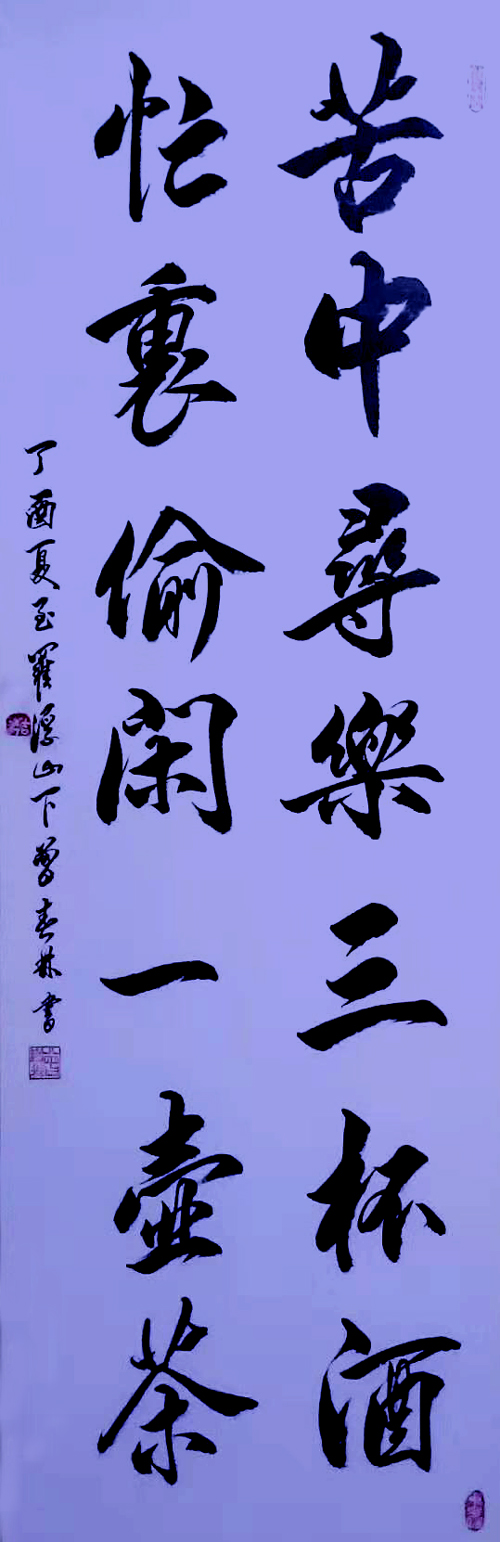 苦中尋樂三杯酒
忙裏偷閑一壺茶
丁酉夏至羅浮山下曾春林書